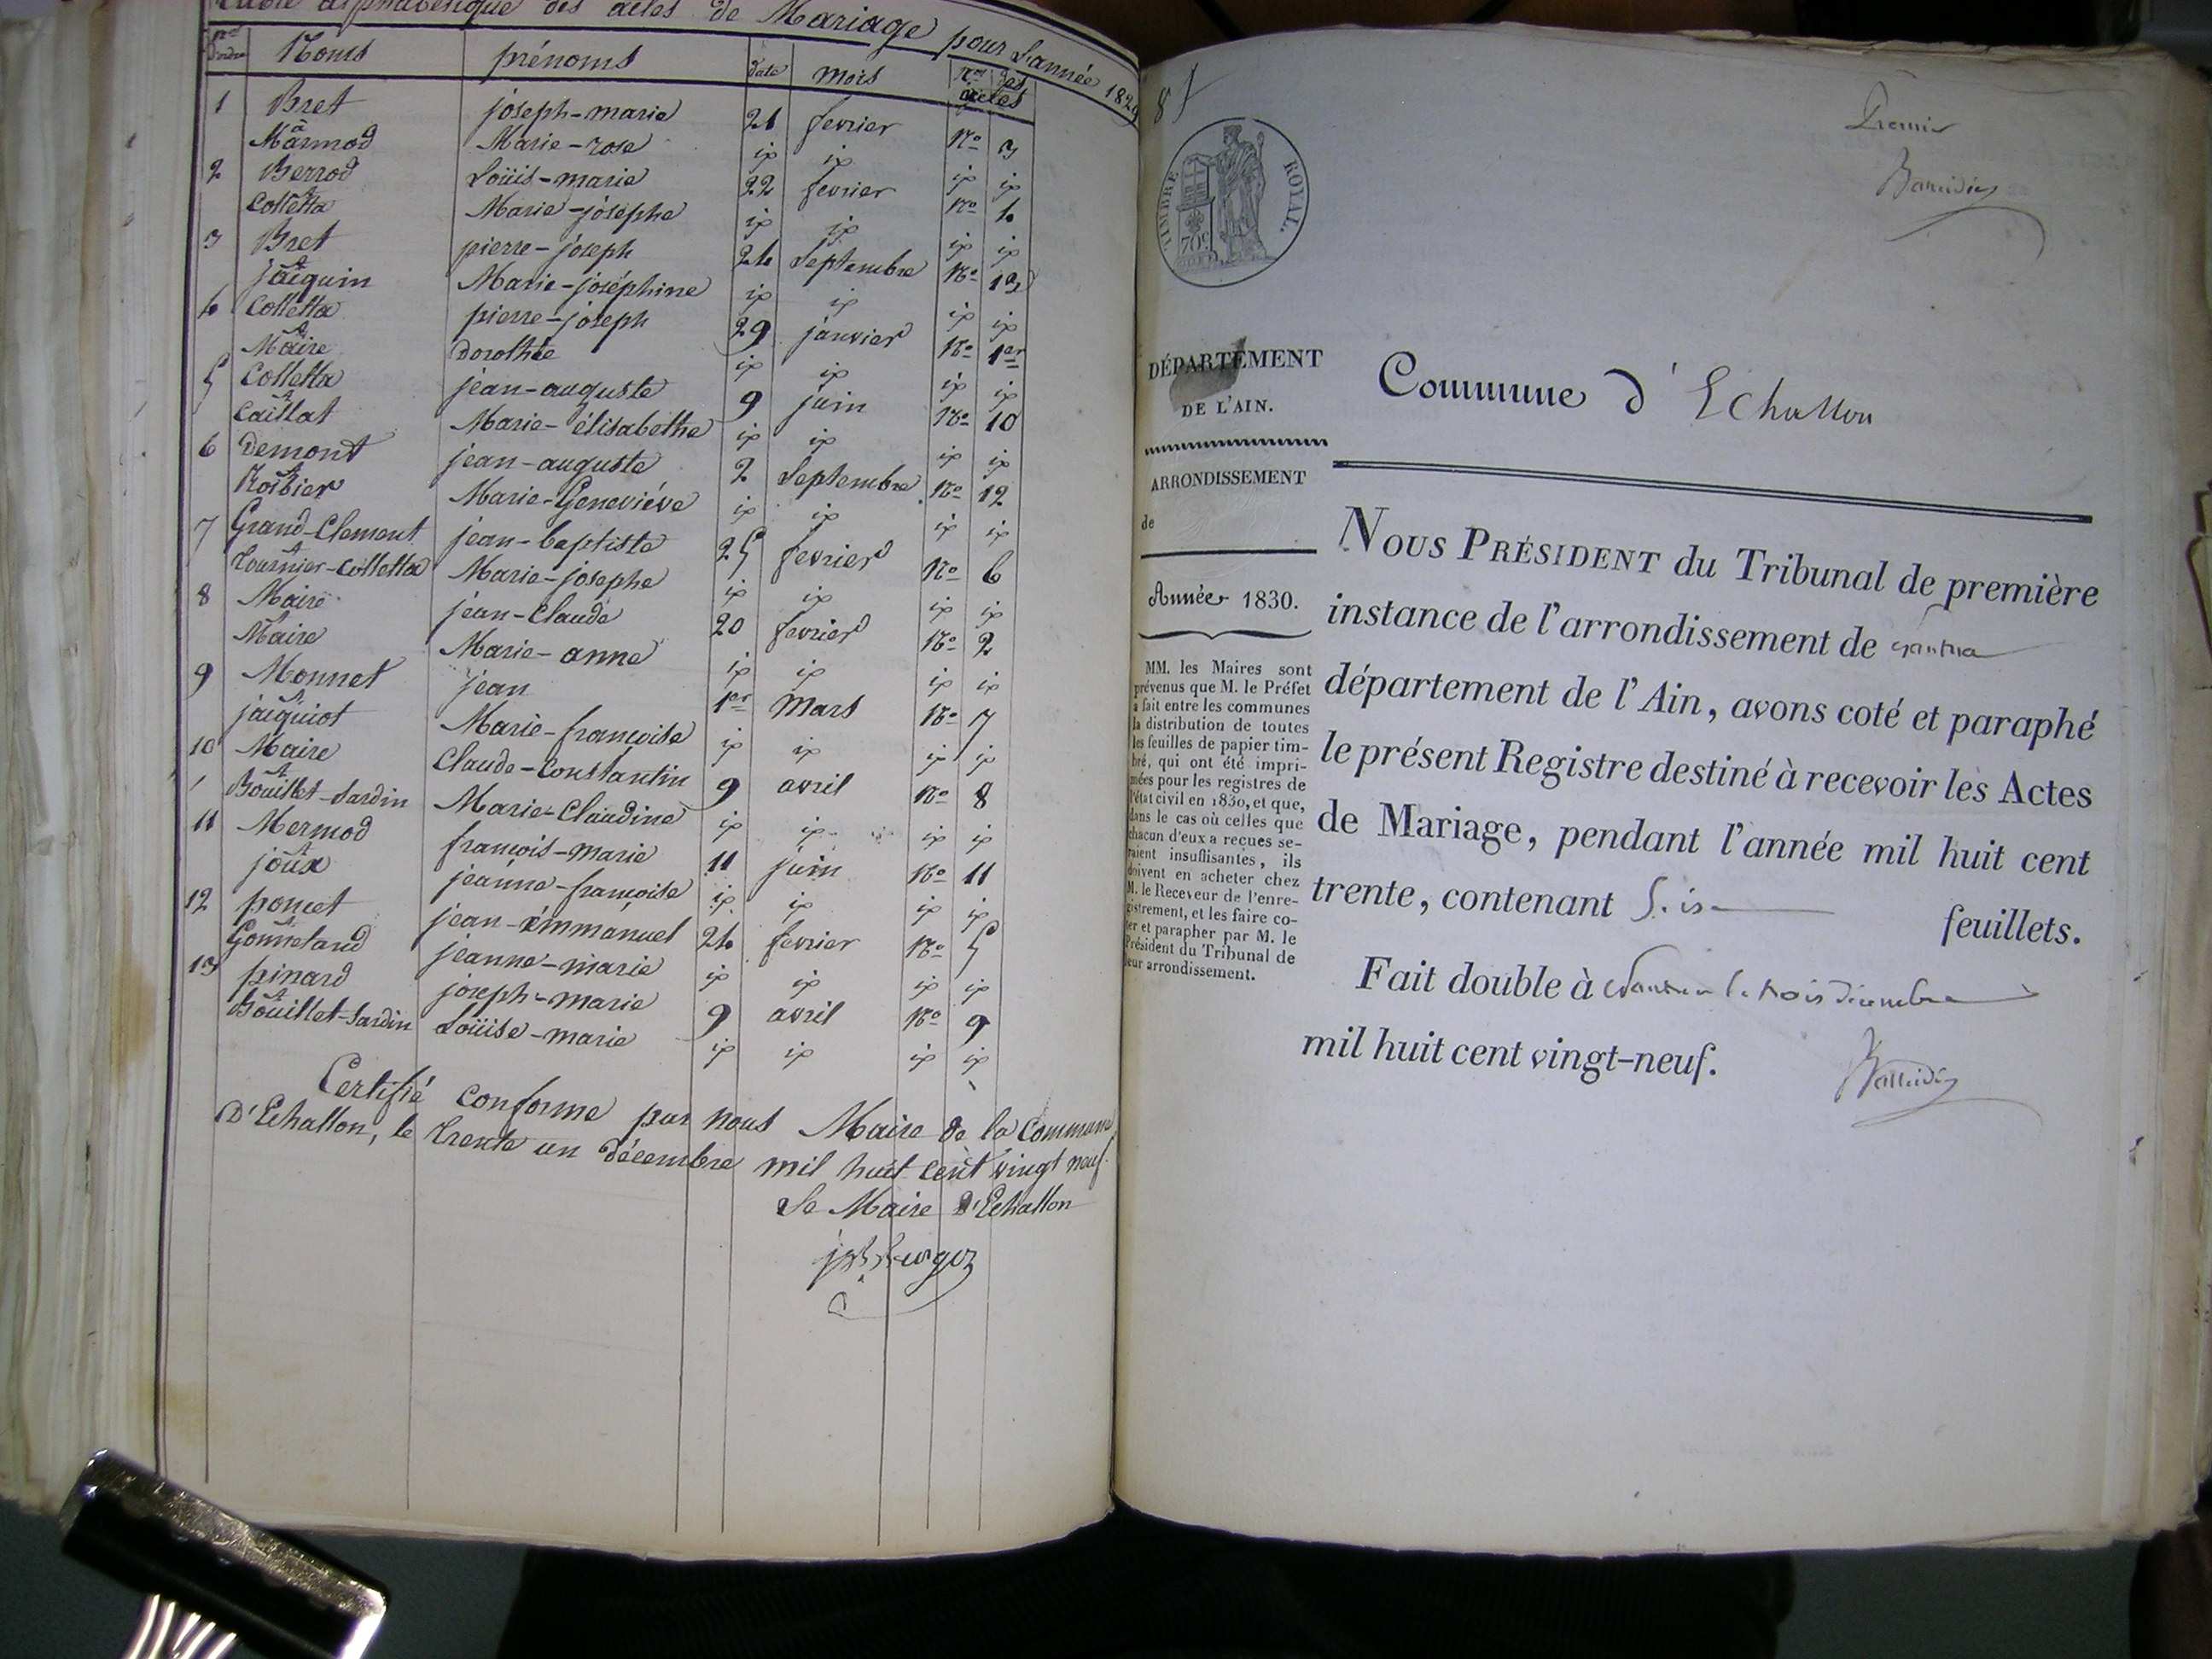 Table alphabétique des actes de Mariage pour L'année 1829
Nos d'ordre Noms prénoms date mois Nos des actes
1 Bret joseph-marie 21 fevrier No 3
à Marmod Marie-rose ip ip ip ip
2 Berrod Loüis-marie 22 fevrier No 4
à Colletta Marie-jósephe ip ip ip ip
3 Bret pierre-joseph 24 Septembre No 13
à jaiquin Marie-joséphine ip ip ip ip
4 Colletta pierre-joseph 29 janvier No 1er
à Maire dorothée ip ip ip ip
5 Colletta jean-auguste 9 juin No 10
à Caillat Marie-élisabethe ip ip ip ip
6 Demont jean-auguste 2 Septembre No 12
à Roibier Marie-Geneviéve ip ip ip ip
7 Grand-Clement jean-baptiste 25 fevrier No 6
à Tournier-Colletta Marie-josephe ip ip ip ip
8 Maire jean-Claude 20 fevrier No 2
à Maire Marie-anne ip ip ip ip
9 Monnet jean 1er Mars No 7
à jaiquiot Marie-françoise ip ip ip ip
10 Maire Claude-Constantin 9 avril No 8
à Bouillet-Sardin Marie-Claudine ip ip ip ip
11 Mermod françois-marie 11 juin No 11
à joux jeanne-françoise ip ip ip ip
12 poncet jean-emmanuel 24 fevrier No 5
à Gonneland jeanne-marie ip ip ip ip
13 pinard joseph-marie 9 avril No 9
à Bouillet-Sardin Loüise-marie ip ip ip ip
Certifié conforme par nous Maire de la Commune
D'Echallon, le trente un décembre mil huit cent vingt neuf.
Le Maire D'Echallon
Premier
TIMBRE ROYAL.
70c
DÉPARTEMENT
DE L'AIN.
Commune d' Echallon
ARRONDISSEMENT
de
Année 1830.
MM. les Maires sont
prévenus que M. le Préfet
a fait entre les communes
la distribution de toutes
les feuilles de papier tim-
bré, qui ont été impri-
mées pour les registres de
l'état civil en 1830, et que,
dans le cas où celles que
chacun d'eux a reçues se-
raient insuffisantes, ils
doivent en acheter chez
M. le Receveur de l'enre-
gistrement, et les faire co-
ter et parapher par M. le
Président du Tribunal de
leur arrondissement.
NOUS PRÉSIDENT du Tribunal de première
instance de l'arrondissement de nantua
département de l'Ain, avons coté et paraphé
le présent Registre destiné à recevoir les Actes
de Mariage, pendant l'année mil huit cent
trente, contenant feuillets.
Fait double à nantua le trois décembre
mil huit cent vingt-neuf.